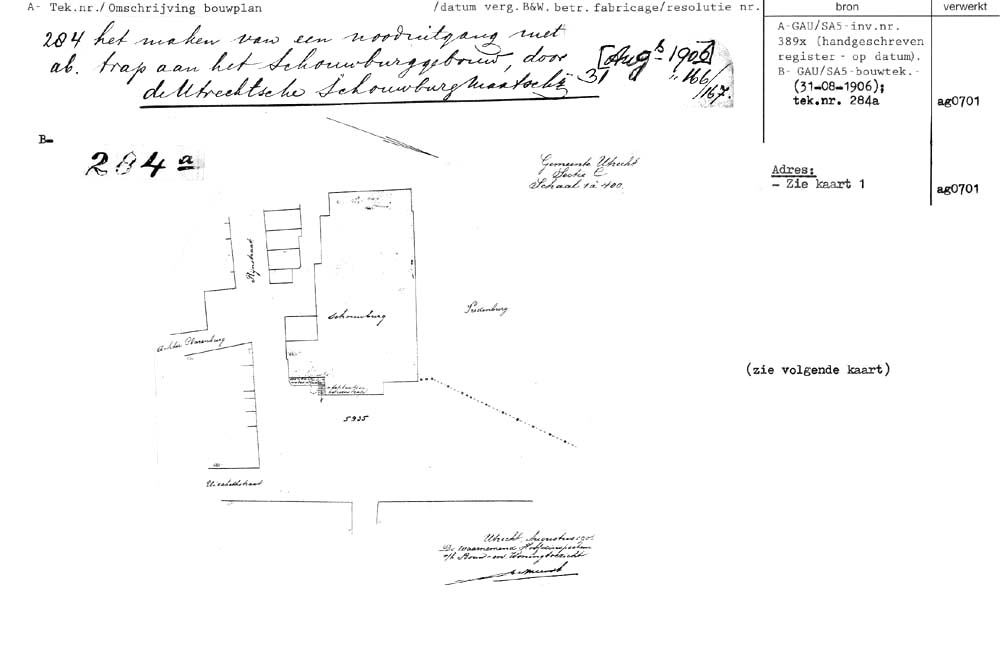 A- Tek.nr./Omschrijving bouwplan /datum verg.B&W.betr.fabricage/resolutie nr. bron verwerkt
284 het maken van een nooduitgang met
ab. trap aan het Schouwburggebouw, door
de Utrechtsche Schouwburg Maatsch:
31 [Aug 1906]
166/
167.
A-GAU/SA5-inv.nr.
389x (handgeschreven
register - op datum).
B- GAU/SA5-bouwtek.-
(31-08-1906);
tek.nr. 284a
ag0701
B-
284 a
Gemeente Utrecht
Sectie C
Schaal 1 à 400.
Adres:
- Zie kaart 1
ag0701
Rijnstraat
Schouwburg
Vredenburg
Achter Clarenburg
(zie volgende kaart)
5935
Utrecht, Augustus 190
De Waarnemend Hoofdinspecteur
v/h Bouw- en Woningtoezicht